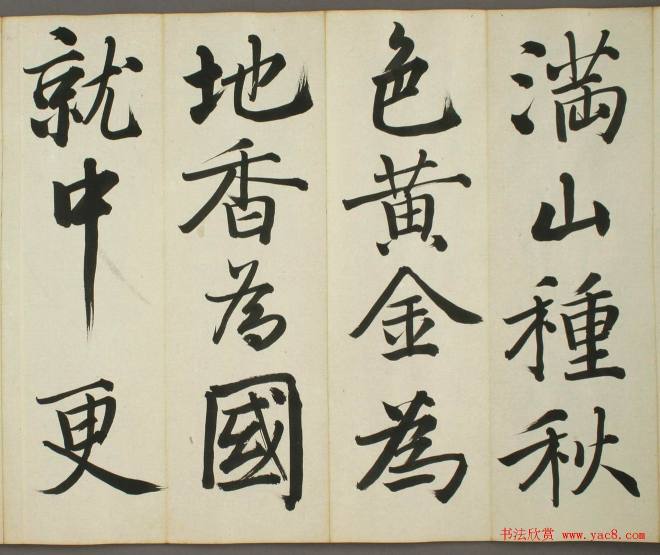 滿山種秋
色黄金為
地香為國
就中更
书法欣赏 www.yac8.com